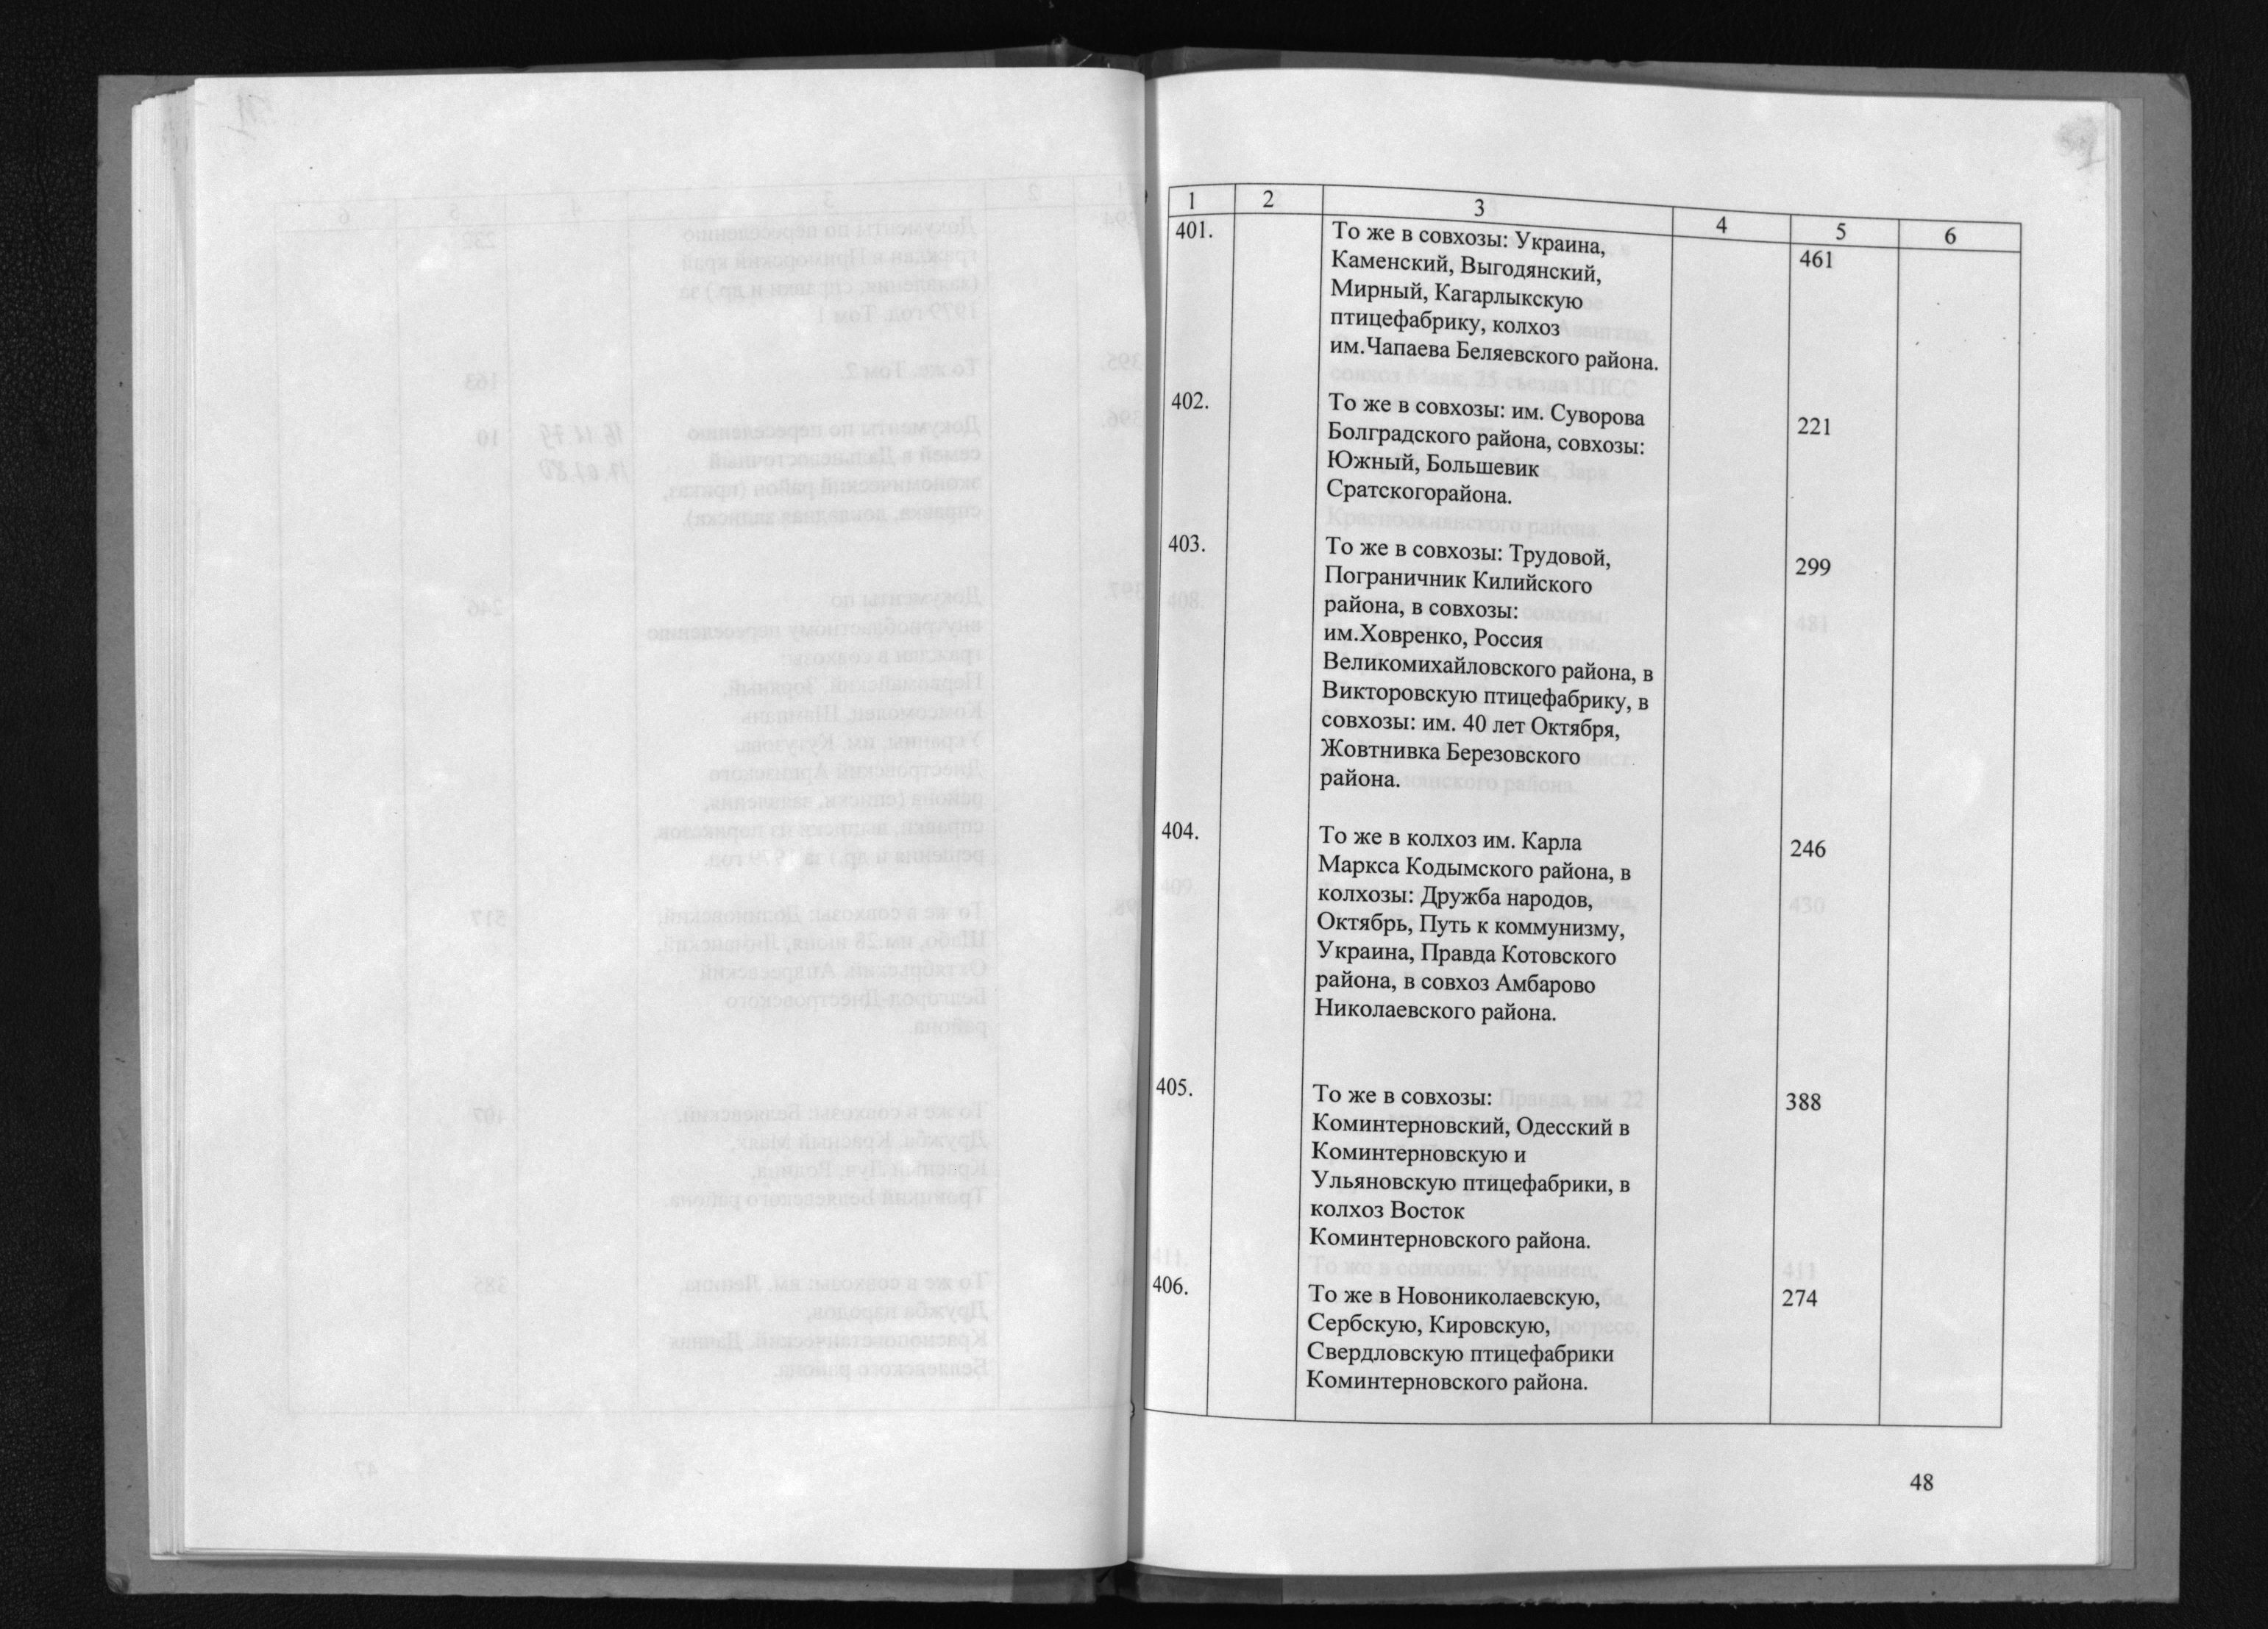 1 2 3 4 5 6
401. То же в совхозы: Украина, 461
Каменский, Выгодянский,
Мирный, Кагарлыкскую
птицефабрику, колхоз
им.Чапаева Беляевского района.
402. То же в совхозы: им. Суворова 221
Болградского района, совхозы:
Южный, Большевик
Сратскогорайона.
403. То же в совхозы: Трудовой, 299
Пограничник Килийского
района, в совхозы:
им.Ховренко, Россия
Великомихайловского района, в
Викторовскую птицефабрику, в
совхозы: им. 40 лет Октября,
Жовтнивка Березовского
района.
404. То же в колхоз им. Карла 246
Маркса Кодымского района, в
колхозы: Дружба народов,
Октябрь, Путь к коммунизму,
Украина, Правда Котовского
района, в совхоз Амбарово
Николаевского района.
405. То же в совхозы: 388
Коминтерновский, Одесский в
Коминтерновскую и
Ульяновскую птицефабрики, в
колхоз Восток
Коминтерновского района.
406. То же в Новониколаевскую, 274
Сербскую, Кировскую,
Свердловскую птицефабрики
Коминтерновского района.
48